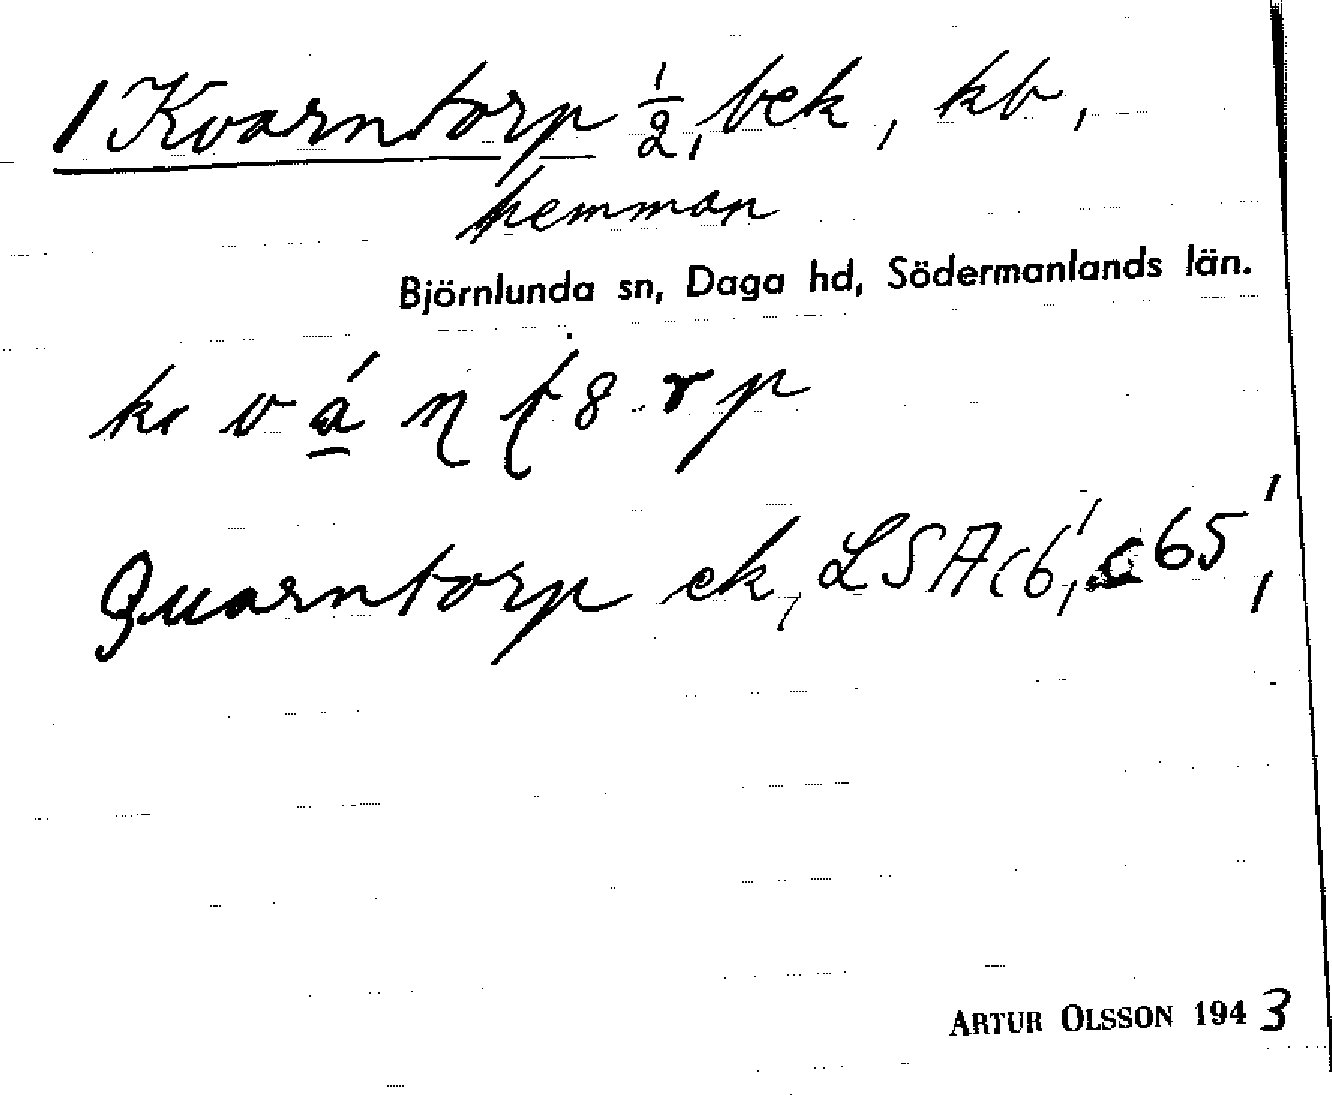 1 Kvarntorp 1/2, bek, kb,
hemman
Björnlunda sn, Daga hd, Södermanlands län.
Quarntorp ek, LSA c6', c65',
ARTUR OLSSON 1943